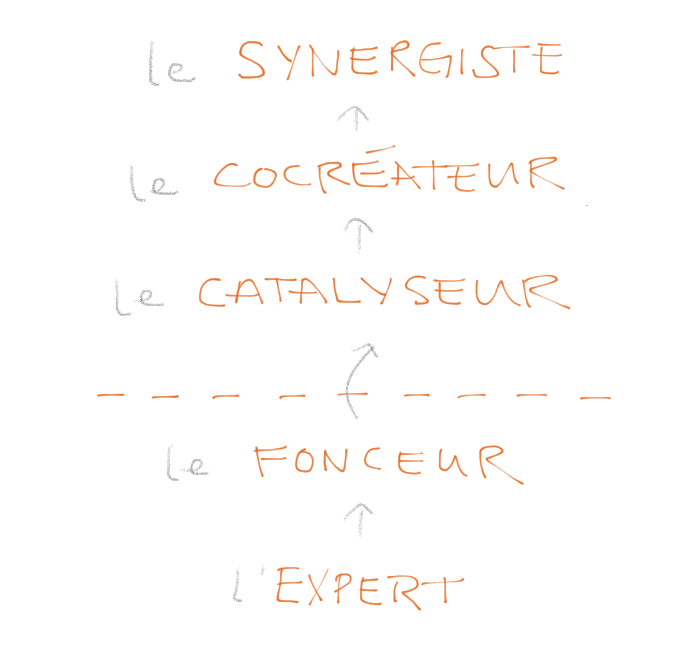 le SYNERGISTE
le COCRÉATEUR
le CATALYSEUR
le FONCEUR
l'EXPERT